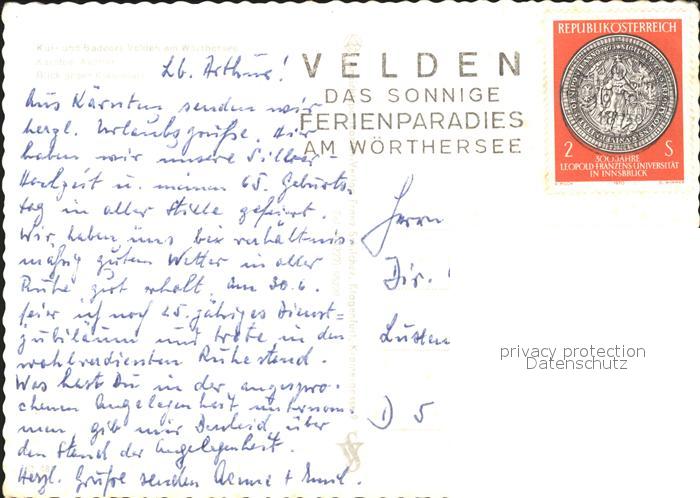 Kur- und Badeort Velden am Wörthersee
Kärnten, Austria
Lb. Arthur!
Aus Kärnten senden wir
herzl. Urlaubsgrüße. Hier
haben wir unsere Silber-
Hochzeit u. meinen 65. Geburts-
tag in aller Stille gefeiert.
Wir haben uns bei verhältnis-
mäßig gutem Wetter in aller
Ruhe gut erholt. Am 30.6.
feier ich noch 25-jähriges Dienst=
jubiläum und trete in den
wohlverdienten Ruhestand.
Was hast Du in der angespro-
chenen Angelegenheit unternom-
men, gib mir Bescheid über
den Stand der Angelegenheit.
Herzl. Grüße senden Aenne + Emil.
VELDEN
DAS SONNIGE
FERIENPARADIES
AM WÖRTHERSEE
REPUBLIK ÖSTERREICH
2 S
300 JAHRE
LEOPOLD-FRANZENS-UNIVERSITÄT
IN INNSBRUCK
1970
Herrn
Dir.
D 5
privacy protection
Datenschutz